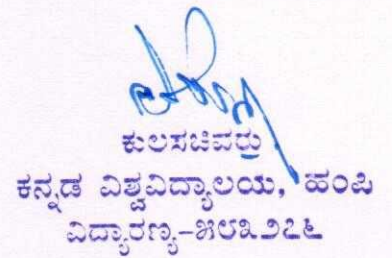 ಕುಲಸಚಿವರು
ಕನ್ನಡ ವಿಶ್ವವಿದ್ಯಾಲಯ, ಹಂಪಿ
ವಿದ್ಯಾರಣ್ಯ-೫೮೩೨೭೬